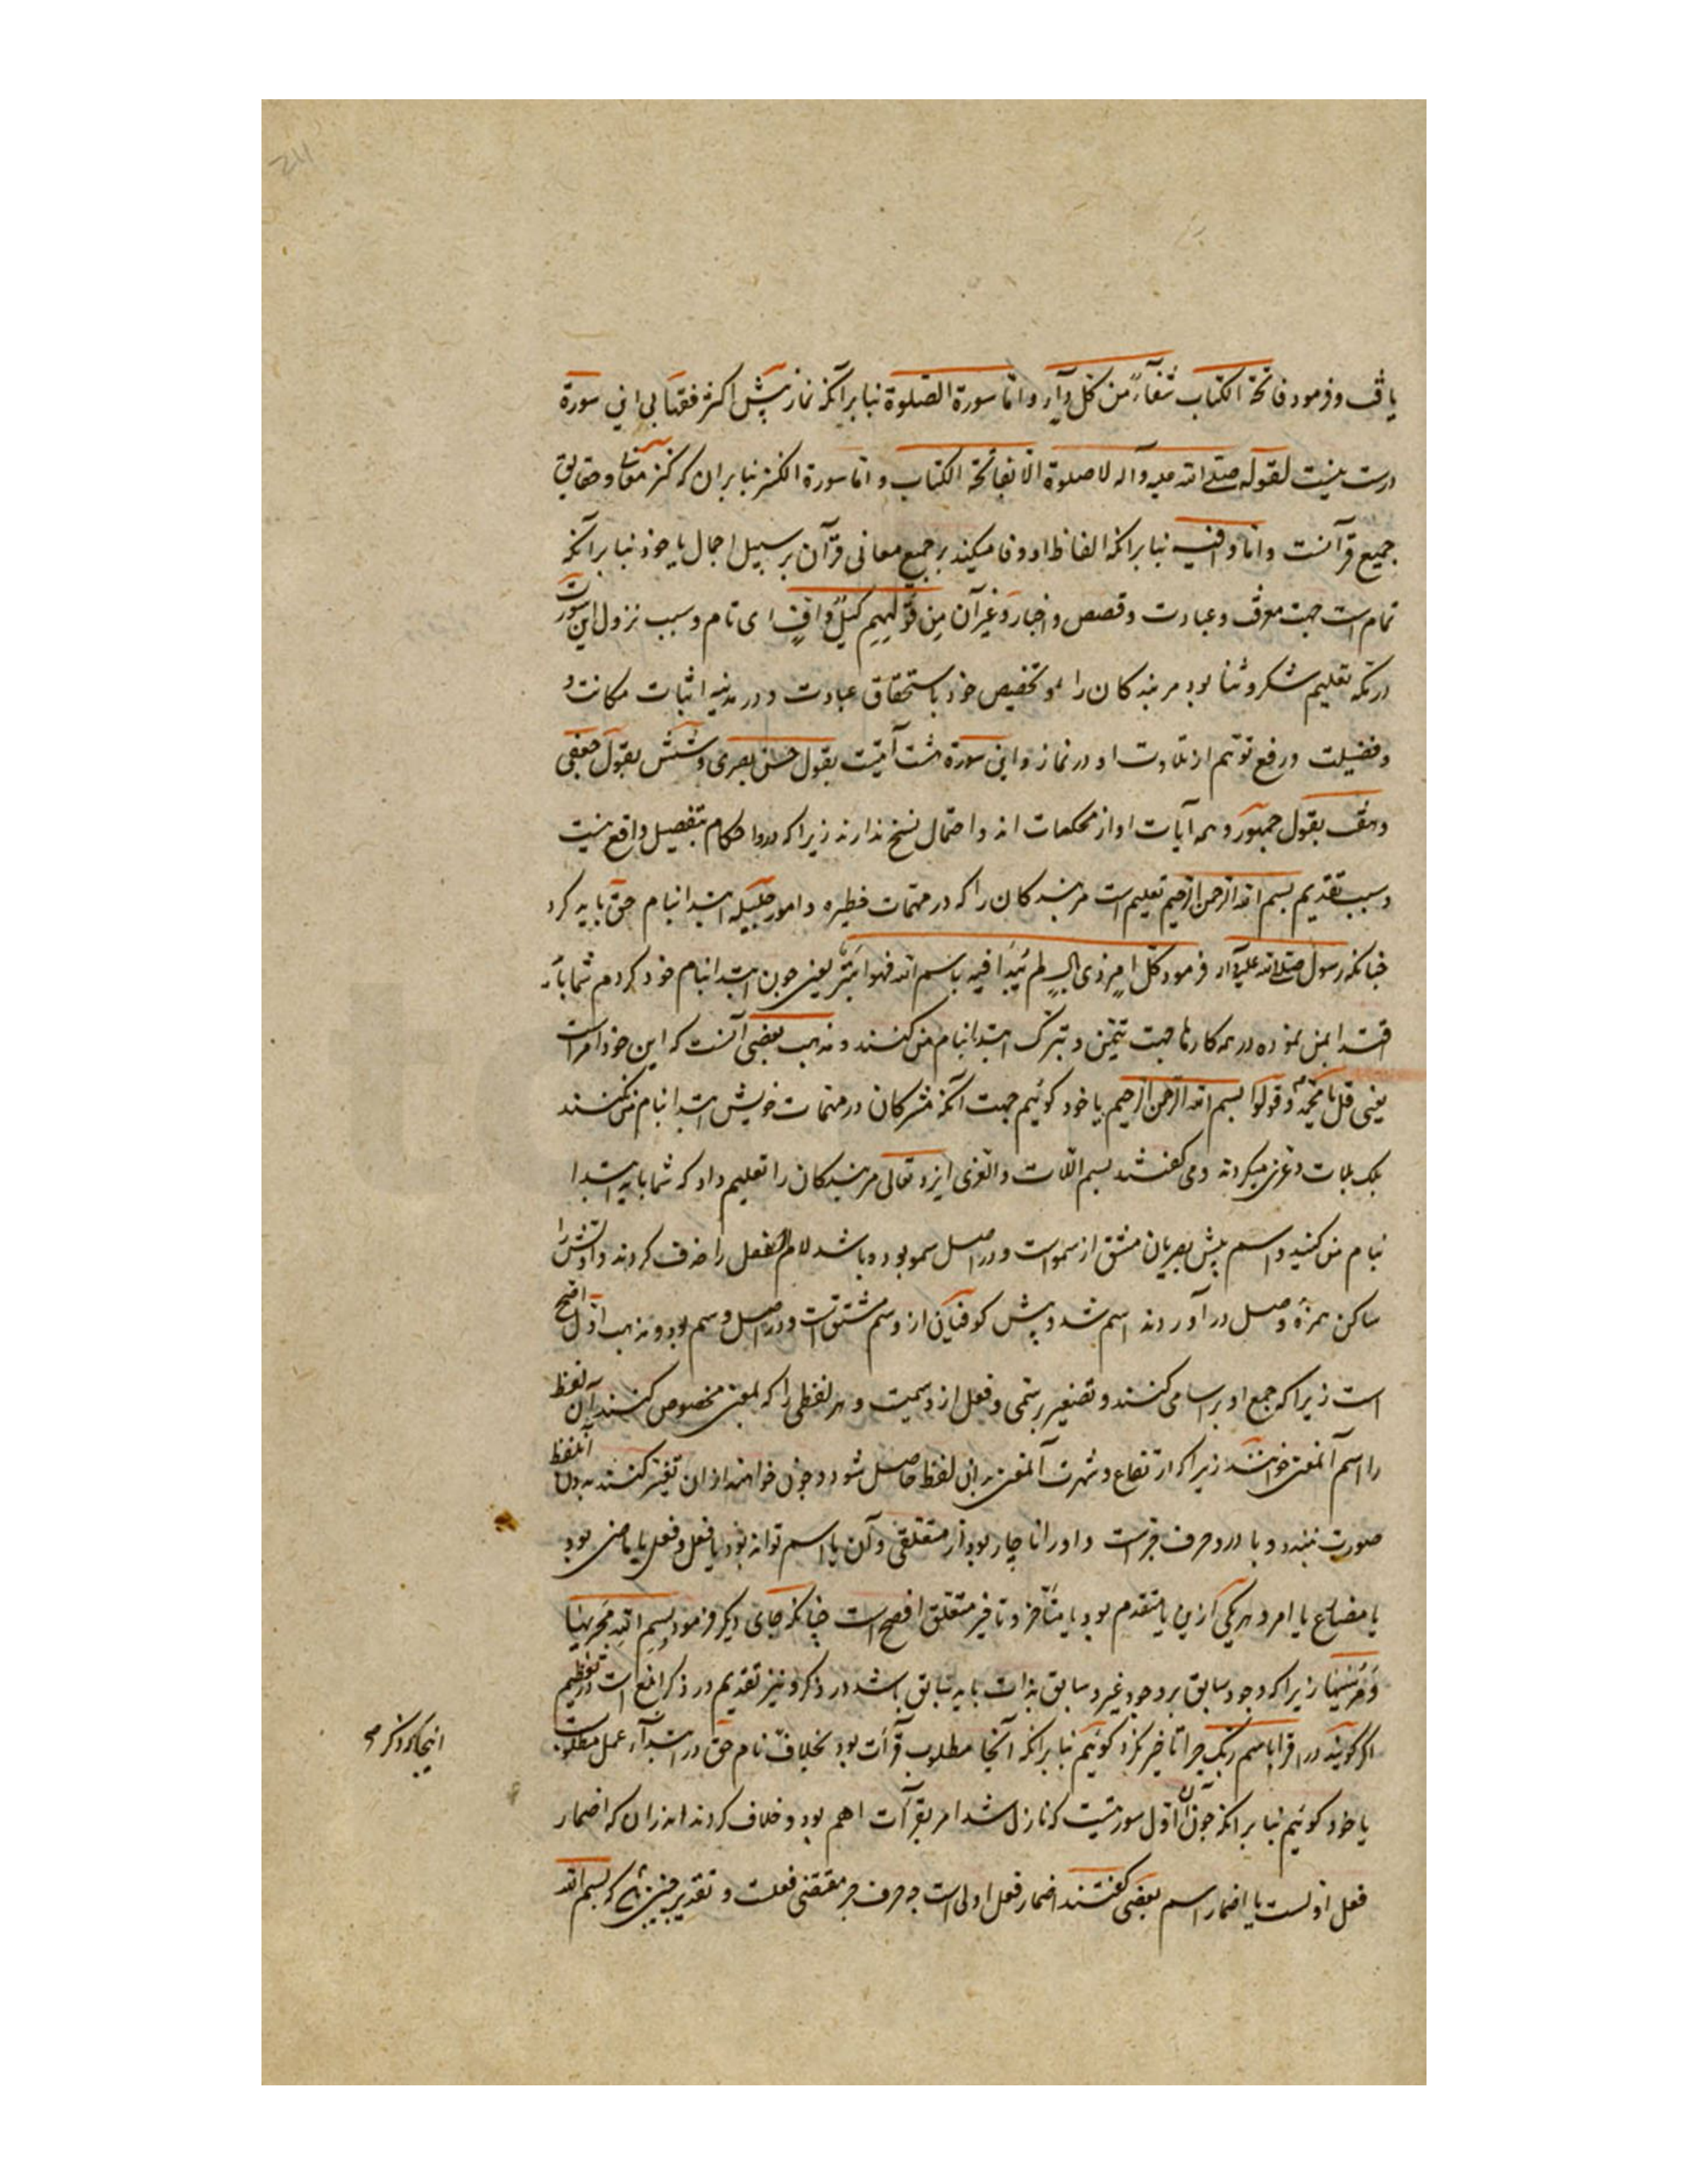 یافت و فرمود فاتحة الکتاب شفآءً من کل دآء و امّا سورة الصّلوة بنا بر آنکه نماز پیش اکثر فقها بی این سورة
درست نیست لقوله صلی الله علیه و آله لا صلوة الّا بفاتحة الکتاب و امّا سورة الکنز بنا بر ان که کنز معانی و حقایق
جمیع قرآنست و امّا وافیه بنا بر انکه الفاظ او وفا میکند بر جمیع معانی قرآن بر سبیل اجمال یا خود بنا بر آنکه
تمام است جهت معرفت و عبادت و قصص و اخبار و غیر آن مِن قَولِهِم کیلٌ وافٍ ای تام و سبب نزول این سورت
در مکّه تعلیم شکر و ثنا بود مر بندکان را و تخصیص خود باستحقاق عبادت و در مدینه اثبات مکانت و
و فضیلت و رفع توهّم از تلاوت او در نماز و این سورة هشت آیتست بقول حسن بصری و شش بقول جعفی
و هفت بقول جمهور و همه آیات او از محکمات اند و احتمال نسخ ندارند زیرا که درو احکام بتفصیل واقع نیست
و سبب تقدیم بسم الله الرحمن الرحیم تعلیم است مر بندکان را که در مهمّات خطیره و امور جلیله ابتدا بنام حق باید کرد
چنانکه رسول صلی الله علیه و آله فرمود کل امرٍ ذی بالٍ لم یُبدَأ فیه باسم الله فهو ابتر یعنی چون ابتدا بنام خود کردم شما باید
اقتدا بمن نموده در همه کارها جهت تیمّن و تبرّک ابتدا بنام من کنند و مذهب بعضی آنست که این خود امر است
یعنی قل یا محمّد و قولوا بسم الله الرحمن الرحیم یا خود کوئیم جهت آنکه مشرکان در مهمّات خویش ابتدا بنام من نکنند
بلک بلات و عزی میکردند و می کفتند بسم اللات و العزی ایزد تعالی مر بندکان را تعلیم داد که شما باید ابتدا
بنام من کنید و اسم پیش بصریان مشتق از سموّ است و در اصل سمو بوده باشد لام الفعل را حذف کردند و اوّلش را
ساکن همزهٔ وصل در آوردند اسم شد و پیش کوفیان از وسم مشتق است و در اصل وسم بود و مذهب اوّل اصح
است زیرا که جمع او بر اسامی کنند و تصغیر بر سُمَی و فعل از و سمیت و هر لفظی را که بمعنی مخصوص کنند آن لفظ
را اسم آنمعنی خوانند زیرا که ارتفاع و شهرت آنمعنی بدان لفظ حاصل شود و چون خواهند از ان تغیّر کنند بدون آنلفظ
صورت نبندد و با درو حرف جرّ است و او را ناچار بود از متعلقی و آن یا اسم تواند بود یا فعل و فعل یا ماضی بود
یا مضارع یا امر و هر یکی ازین یا متقدم بود یا متأخر و تاخیر متعلق افصح است چنانکه جای دیکر فرمود بسمِ اللهِ مَجریها
وَ مُرسٰیها زیرا که وجود سابق بر وجود غیر و سابق بذات باید سابق باشد در ذکر و نیز تقدیم در ذکر ابلغ است در تعظیم
اکر کویند در اقرا باسم ربک چرا تاخیر کرد کوئیم بنا بر انکه آنجا مطلوب قرآءت بود بخلاف نام حق در ابتدآء عمل مطلوبست
یا خود کوئیم بنا بر انکه چون آن اوّل سورتیست که نازل شد امر بقرآءت اهم بود و خلاف کردند اندران که اضمار
فعل اولیست یا اضمار اسم بعضی کفتند اضمار فعل اولی است چه حرف جر مقتضی فعلست و تقدیر چنین که بسم الله